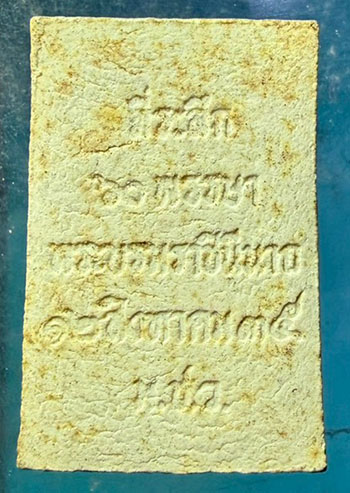 ที่ระลึก
๖๐ พรรษา
พระบรมราชินีนาถ
๑๒ สิงหาคม ๓๕
ม.ช.ค.